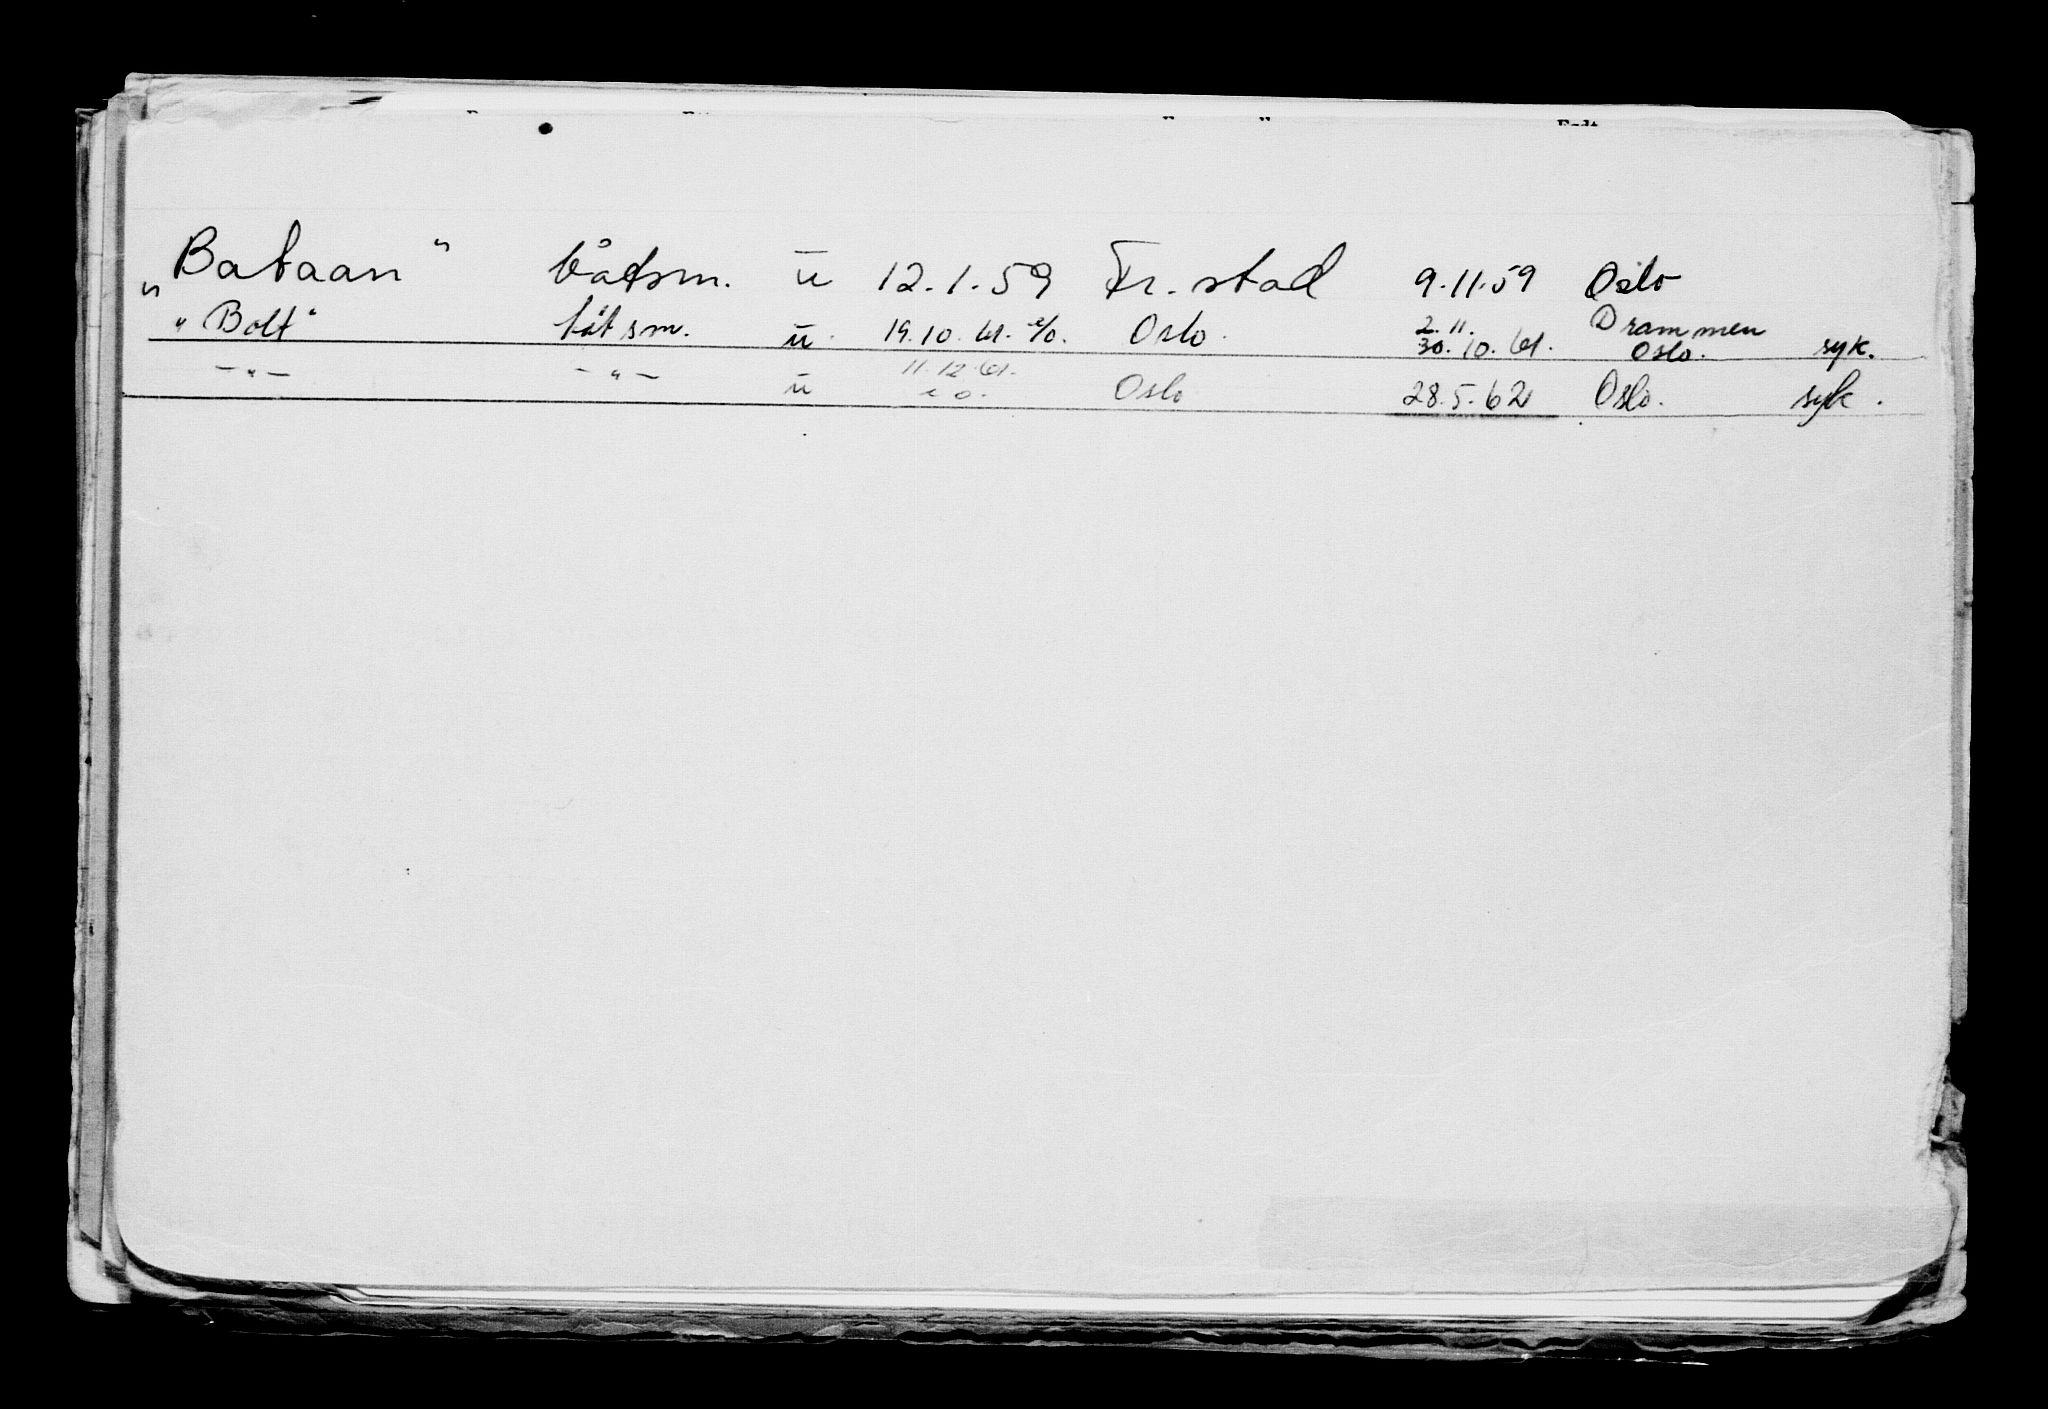 „Bataan“ båtsm. ū 12.1.59 Fr.stad 9.11.59 Oslo
"Bolt" båtsm. ū. 19.10.61. e/o. Oslo. 2.11. Drammen
30.10.61. Oslo. syk.
—"— —"— ū 11.12.61. Oslo 28.5.62 Oslo. syk.